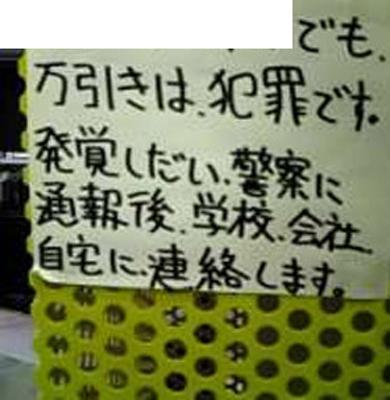 でも、
万引きは、犯罪です。
発覚しだい、警察に
通報後、学校、会社
自宅に、連絡します。